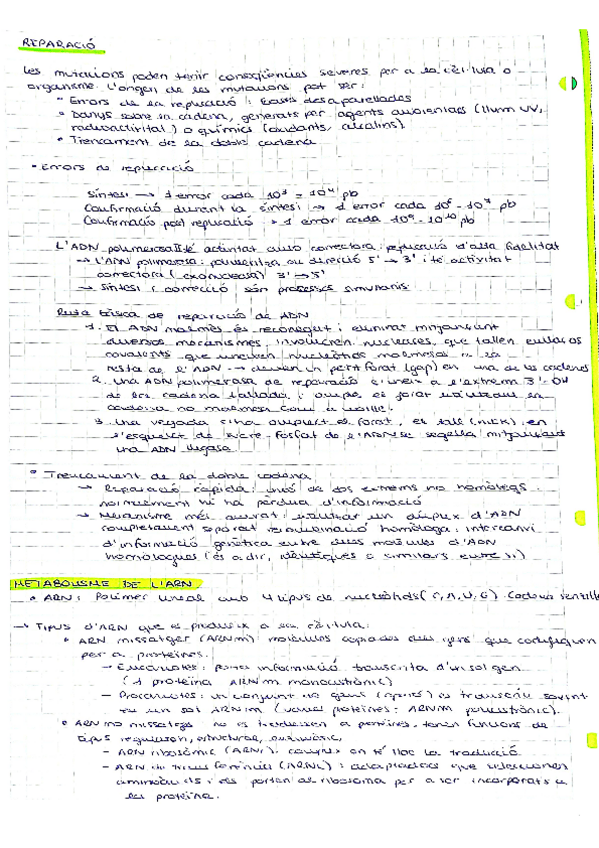 REPARACIÓ
Les mutacions poden tenir conseqüències severes per a la cèl·lula o
organisme. L'origen de les mutacions pot ser:
° Errors de la replicació: bases desaparellades
° Danys sobre la cadena, generats per agents ambientals (llum UV,
radioactivitat) o químics (oxidants, alcalins)
° Trencament de la doble cadena
• Errors de replicació
Síntesi → 1 error cada 10³ - 10⁴ pb
Confirmació durant la síntesi → 1 error cada 10⁶ - 10⁷ pb
Confirmació post replicació → 1 error cada 10⁹ - 10¹⁰ pb
L'ADN polimerasa té activitat auto correctora: replicació d'alta fidelitat
→ L'ADN polimerasa: polimeritza en direcció 5' → 3' i té activitat
correctora (exonucleasa) 3' → 5'
→ Síntesi i correcció són processos simultanis.
Ruta bàsica de reparació de ADN
1. El ADN malmès és reconegut i eliminat mitjançant
diversos mecanismes, involucren nucleases, que tallen enllaços
covalents que uneixen nucleòtids malmesos la
resta de l'ADN → deixen un petit forat (gap) en una de les cadenes
2. Una ADN polimerasa de reparació s'uneix a l'extrem 3'-OH
de la cadena tallada i omple el forat utilitzant
cadena no malmesa com a motlle.
3. Una vegada s'ha omplert el forat, el tall (nick) en
l'esquelet de sucre-fosfat de l' se segella mitjançant
una ADN lligasa
° Trencament de la doble cadena:
→ Reparació ràpida: unió de dos extrems no homòlegs
normalment hi ha pèrdua d'informació
→ Mecanisme més acurat: utilitzar un dúplex d'ADN
completament separat recombinació homòloga: intercanvi
d'informació genètica entre dues molècules d'ADN
homòlogues (és a dir, idèntiques o similars entre si)
METABOLISME DE L'ARN
• ARN: Polímer lineal amb 4 tipus de nucleòtids (C, A, U, G). Cadena
→ Tipus d'ARN que es produeix a la cèl·lula:
• ARN missatger (ARNm) molècules copiades dels gens que codifiquen
per a proteïnes.
→ Eucariotes: porta informació transcrita d'un sol gen
(1 proteïna ARNm monocistrònic)
— Procariotes: un conjunt de gens (operó) es transcriu sovint
en un sol ARNm (vàries proteïnes: ARNm policistrònic).
• ARN no missatge no es tradueixen a proteïnes, tenen funcions de
tipus regulador, estructural, enzimàtic.
— ARN ribosòmic (ARNr): on té lloc la traducció.
— ARN de transferència (ARNt): adaptadors que seleccionen
aminoàcids i els porten al ribosoma per a ser incorporats a
la proteïna.